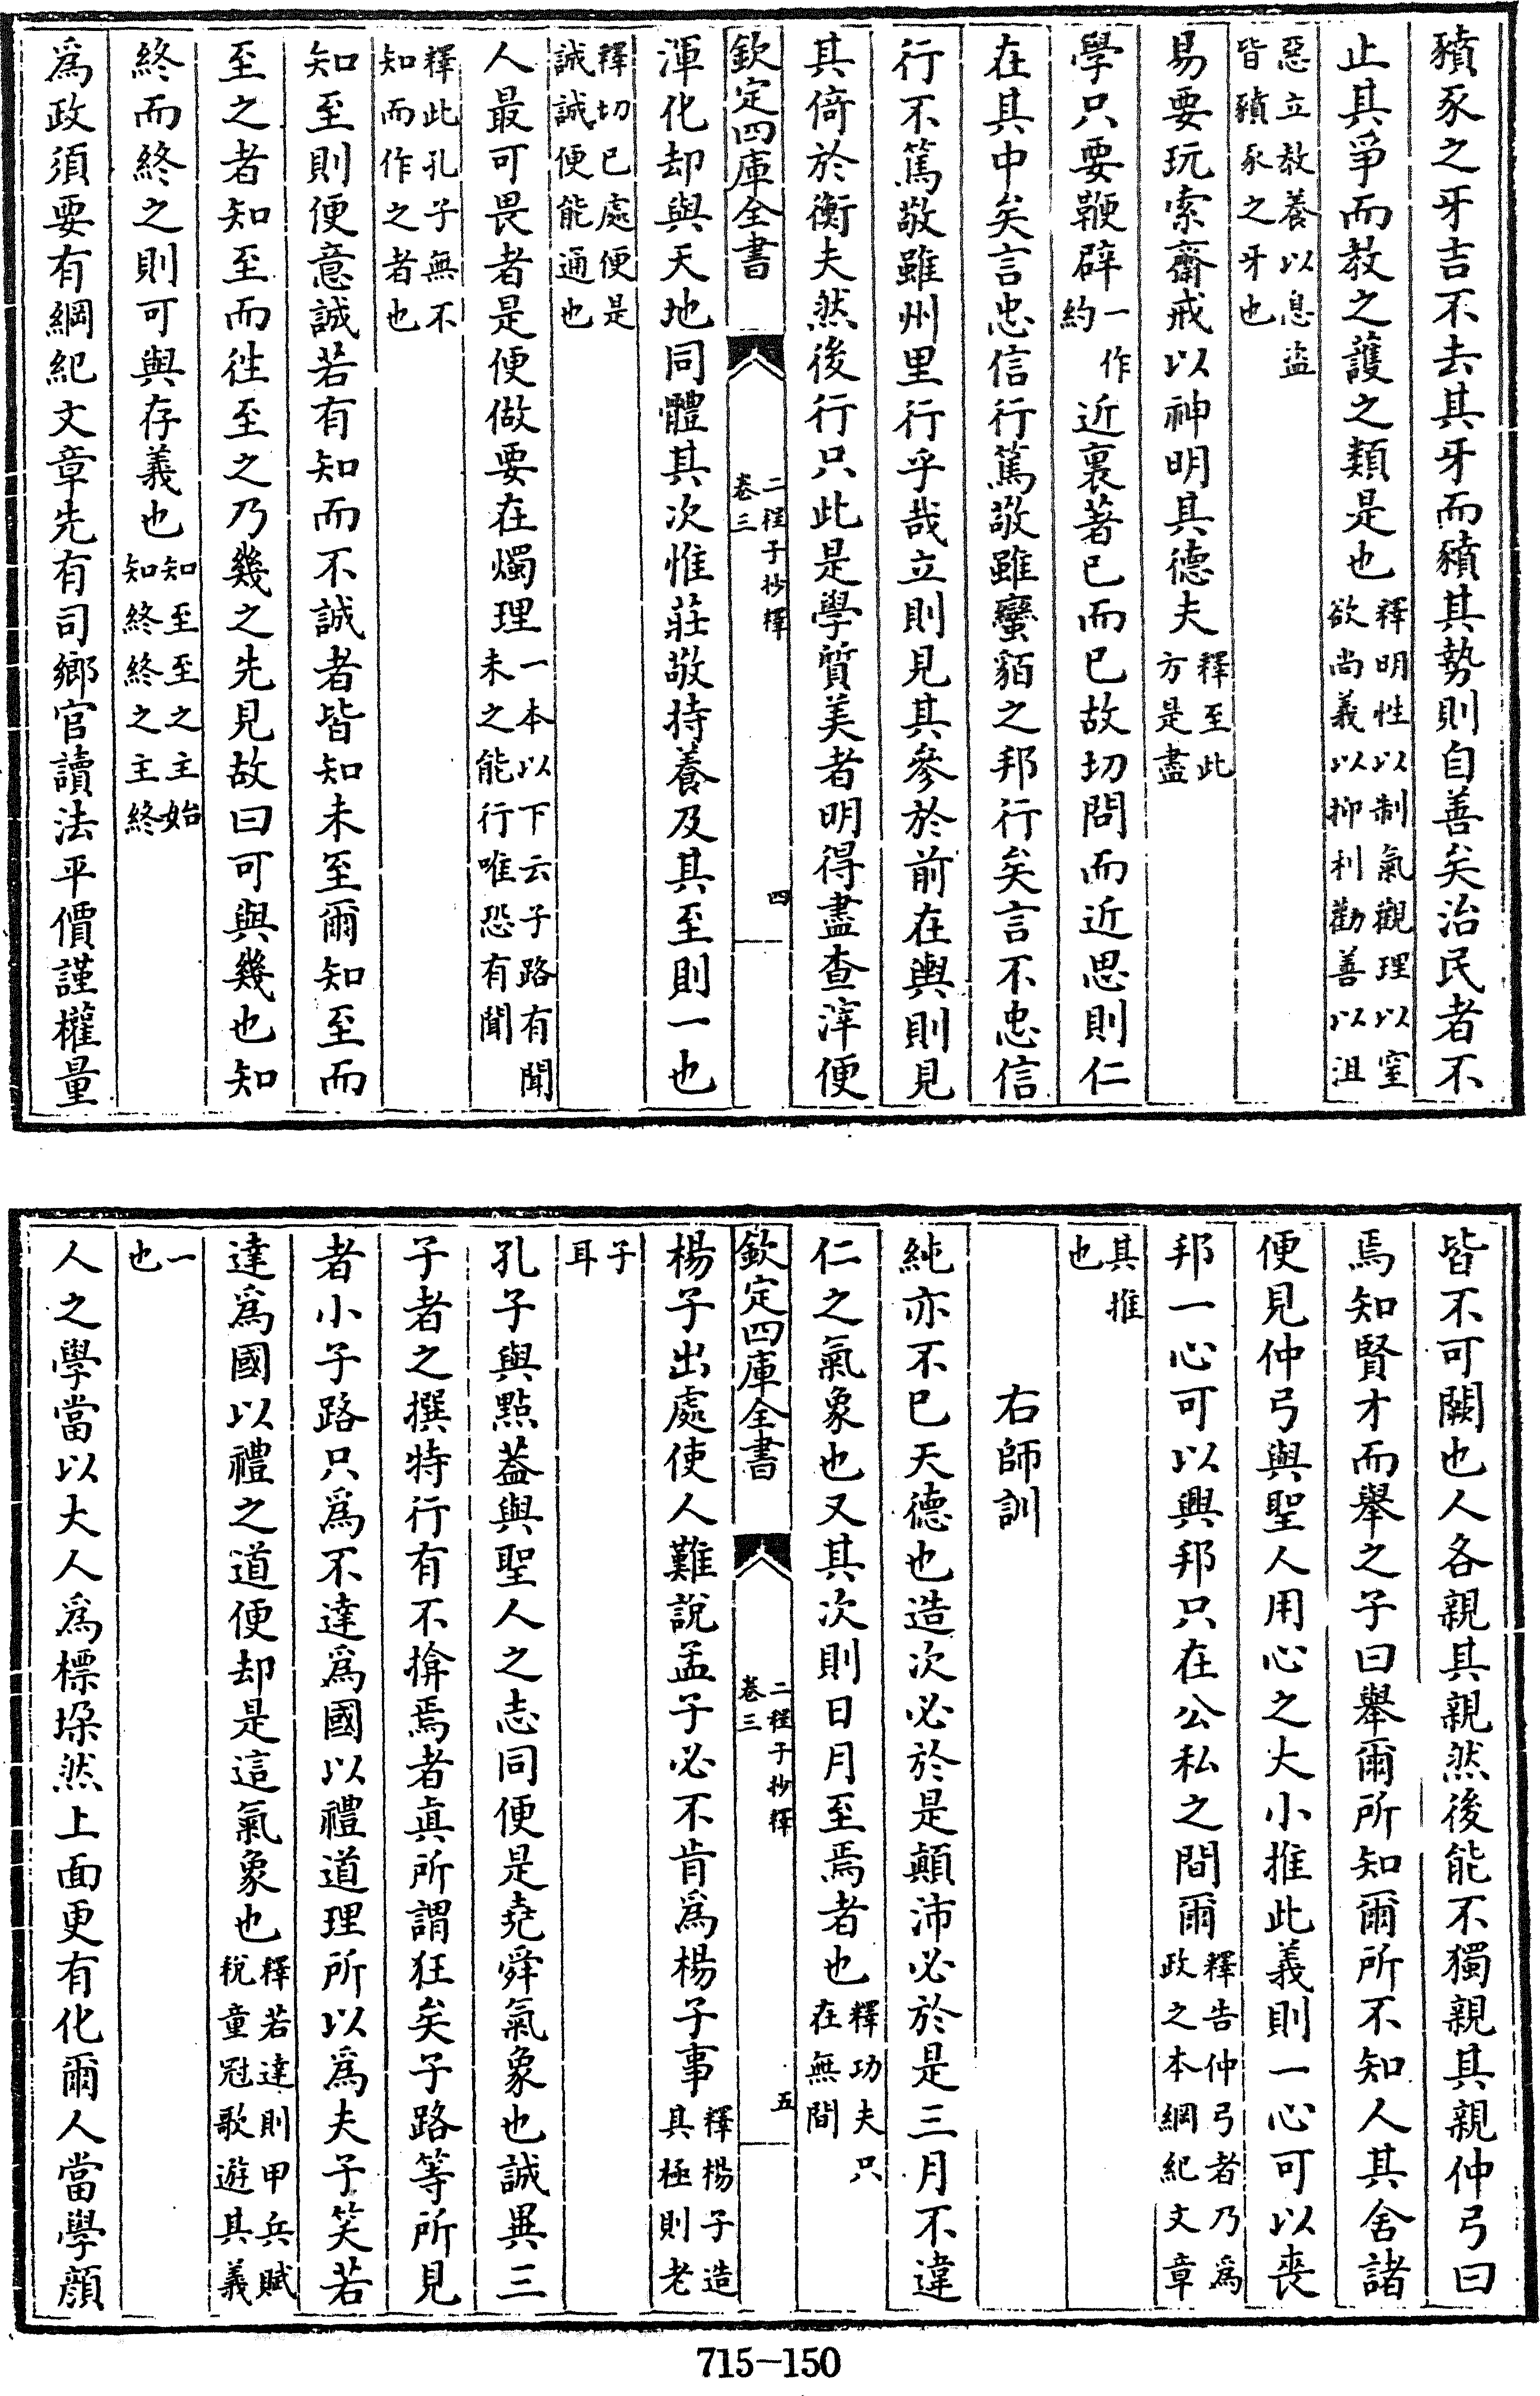 豶豕之牙吉不去其牙而豶其勢則自善矣治民者不
止其爭而教之護之類是也釋明性以制氣觀理以窒欲尚義以抑利勸善以沮
惡立教養以息盜皆豶豕之牙也
易要玩索齋戒以神明其德夫釋至此方是盡
學只要鞭辟一作約近裏著已而已故切問而近思則仁
在其中矣言忠信行篤敬雖蠻貊之邦行矣言不忠信
行不篤敬雖州里行乎哉立則見其參於前在輿則見
其倚於衡夫然後行只此是學質美者明得盡查滓便
欽定四庫全書 二程子抄釋卷三 四
渾化却與天地同體其次惟莊敬持養及其至則一也
釋切已處便是誠誠便能通也
人最可畏者是便做要在燭理一本以下云子路有聞未之能行唯恐有聞
釋此孔子無不知而作之者也
知至則便意誠若有知而不誠者皆知未至爾知至而
至之者知至而徃至之乃幾之先見故曰可與幾也知
終而終之則可與存義也知至至之主始知終終之主終
為政須要有綱紀文章先有司鄉官讀法平價謹權量
皆不可闕也人各親其親然後能不獨親其親仲弓曰
焉知賢才而舉之子曰舉爾所知爾所不知人其舍諸
便見仲弓與聖人用心之大小推此義則一心可以喪
邦一心可以興邦只在公私之間爾釋告仲弓者乃為政之本綱紀文章
其推也
右師訓
純亦不已天德也造次必於是顛沛必於是三月不違
仁之氣象也又其次則日月至焉者也釋功夫只在無間
欽定四庫全書 二程子抄釋卷三 五
楊子出處使人難說孟子必不肯為楊子事釋楊子造具極則老
子耳
孔子與點蓋與聖人之志同便是堯舜氣象也誠異三
子者之撰特行有不揜焉者真所謂狂矣子路等所見
者小子路只為不達為國以禮道理所以為夫子笑若
達為國以禮之道便却是這氣象也釋若達則甲兵賦稅童冠歌遊其義
一也
人之學當以大人為標垜然上面更有化爾人當學顔
715-150